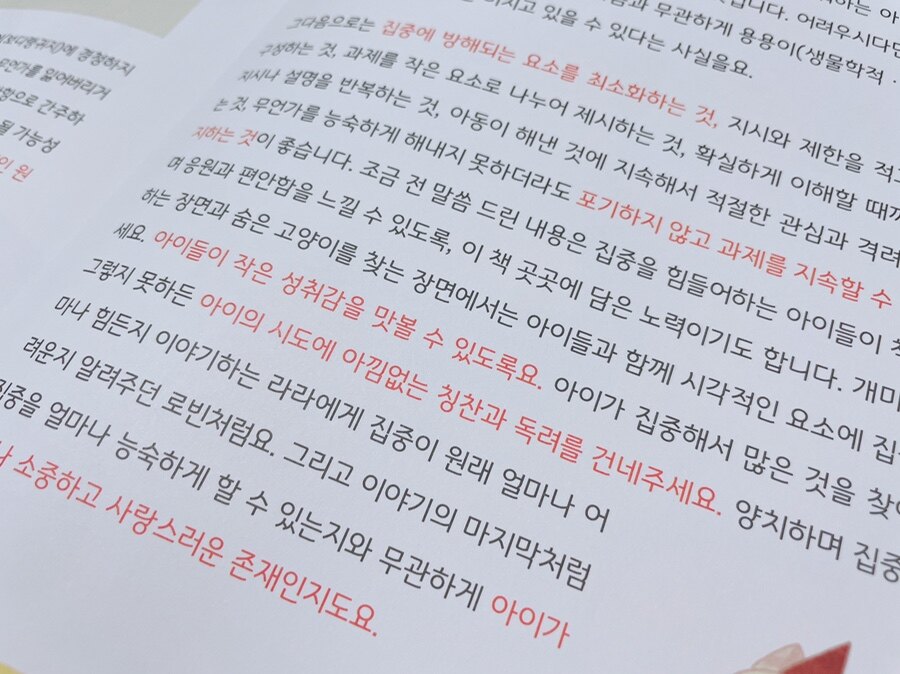 (보디랭귀지)에 경청하지
무언가를 잃어버리거
으로 간주하
될 가능성
인 원
지고 있을 수 있다는 사실을요.
과 무관하게 용용이(생물학적 ·
입니다. 어려우시다면
그다음으로는 집중에 방해되는 요소를 최소화하는 것, 지시와 제한을 적
구성하는 것, 과제를 작은 요소로 나누어 제시하는 것, 확실하게 이해할 때까
지시나 설명을 반복하는 것, 아동이 해낸 것에 지속해서 적절한 관심과 격려
는 것, 무언가를 능숙하게 해내지 못하더라도 포기하지 않고 과제를 지속할 수
지하는 것이 좋습니다. 조금 전 말씀 드린 내용은 집중을 힘들어하는 아이들이
며 응원과 편안함을 느낄 수 있도록, 이 책 곳곳에 담은 노력이기도 합니다. 개미
하는 장면과 숨은 고양이를 찾는 장면에서는 아이들과 함께 시각적인 요소에 집
세요. 아이들이 작은 성취감을 맛볼 수 있도록요. 아이가 집중해서 많은 것을 찾
그렇지 못하든 아이의 시도에 아낌없는 칭찬과 독려를 건네주세요. 양치하며 집중
마나 힘든지 이야기하는 라라에게 집중이 원래 얼마나 어
려운지 알려주던 로빈처럼요. 그리고 이야기의 마지막처럼
집중을 얼마나 능숙하게 할 수 있는지와 무관하게 아이가
나 소중하고 사랑스러운 존재인지도요.